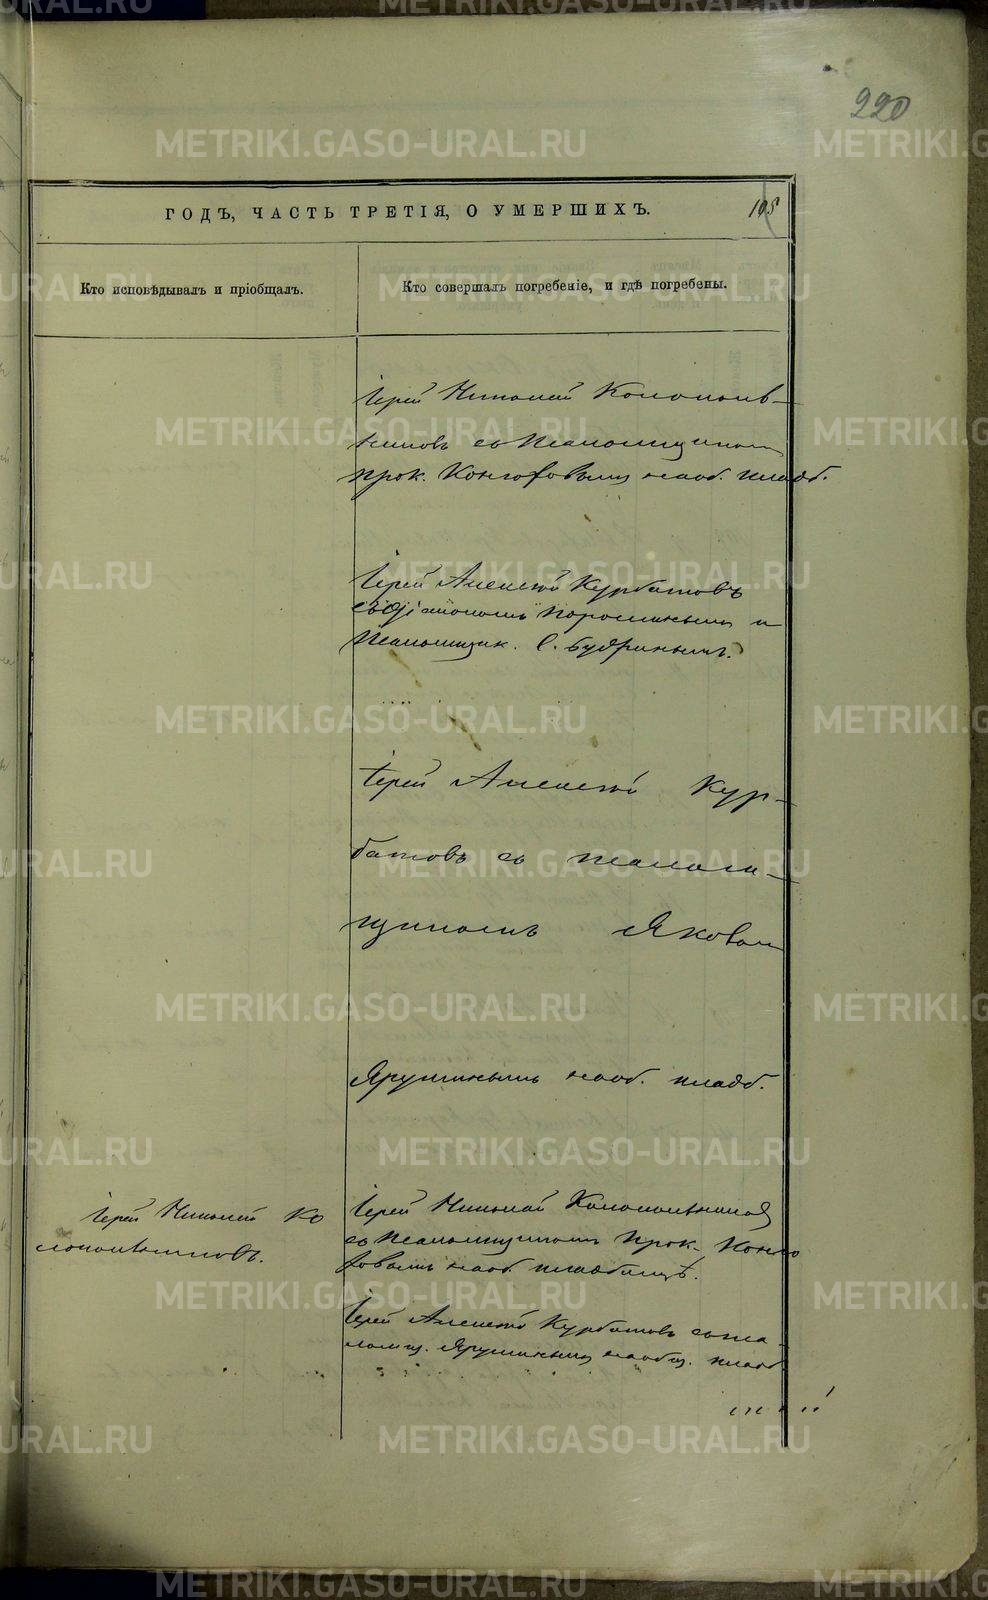 220
ГОДЪ, ЧАСТЬ ТРЕТІЯ, О УМЕРШИХЪ. 105
Кто исповѣдывалъ и пріобщалъ.
Кто совершалъ погребеніе, и гдѣ погребены.
Іерей Николай Колокольни-
ковъ съ Псаломщикомъ
Прок. Конго на об. кладб.
Іерей Алексѣй Курбатовъ
съ Діакономъ Поросинымъ и
Псаломщик. С. Будринымъ.
Іерей Алексѣй Кур-
батовъ съ псалом-
щикомъ Яковомъ
Ярушинымъ на об. кладб.
Іерей Николай Ко
локольниковъ.
Іерей Николай Колокольниковъ
съ Псаломщикомъ Прок. Конго
на об. кладбищѣ.
Іерей Алексѣй Курбатовъ съ пса-
ломщ. Ярушинымъ на общ. кладб.
METRIKI.GASO-URAL.RU